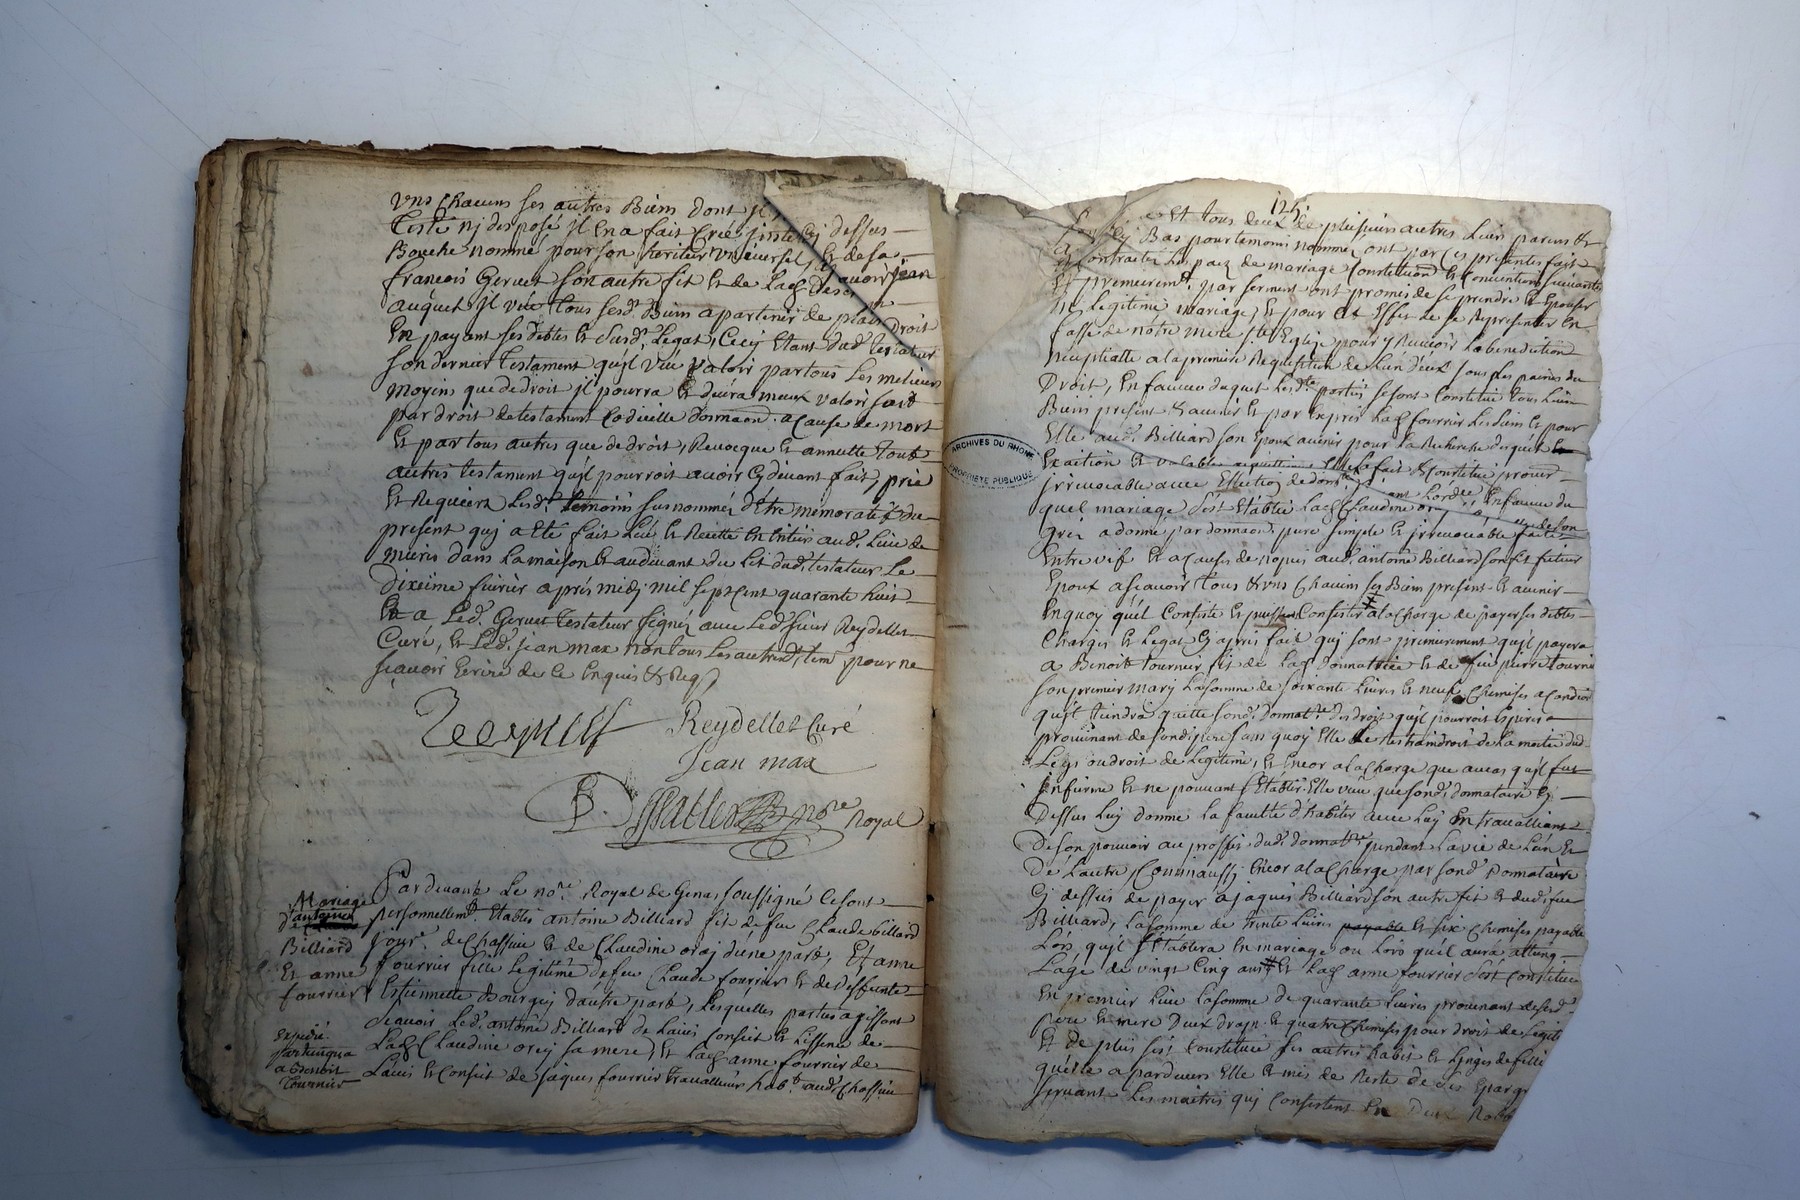 uns chacuns ses autres Biens dont il
testé nj disposé Il en a fait Créé jnste Cj dessus
Bouche nommé pour son heritier universel, et de sa
francois Gervet son autre fils et de lad
auquel Jl veut tous sesd. Biens apartenir de plain Droit
En payant ses debtes et susd. Legat, Cecy Etant dud. testateur
son dernier testament qu'jl veu valoir partous les melieurs
moyens que de droit jl pourra et deura mieux valoir soit
par droit de testament Codicille donnaon. a Cause de mort
Et par tous autres que de droit, Revocque et annulle tout
autres testament qu'jl pourroit avoir Cy devant fait, prie
Et Requiert Lesd. temoins susnommés d'Etre memoratifs du
present quj a Eté fait Leu et Recitté En Entier aud. Lieu de
meiris dans la maison et audevant du Lit dud. testateur Le
Dixeime fevrier après midj mil sept cent quarante huit
Et a Led. Gervet testateur signéz avec led. sieur Reydellet
Curé, et Led. jean max non tous les autresd. tem pour ne
scavoir Ecrire de Ce Enquis et Req
Reydellet Curé
Jean max
nore Royal
Mariage
d'antoine
Billiard
Et anne
fourrier
expedié
a Benoit
tournier
Pardevant Le nore Royal de Genas soussigné Ce sont
personnellemt. Etablis antoine Billiard fils de feu Claude billiard
jour. de Chassieu et de Claudine oraj d'une part, Et anne
fourrier fille Legitime de feu Claude fourrier et de deffunte
Estiennette Bourguj d'autre part, Lesquelles parties agissont
scavoir Led. antoine Billiard de L'avis Conseil et Lissence de
Lad Claudine oraj sa mere, et Lad anne fourrier de
L'avis et Conseil de jaques fourrier travailleur habt. aud. Chassieu
125
Et tous deux de plusieurs autres Leurs parens &
Cj Bas pour temoins nommés ont par Ces presentes fait
et Contractés Les pacz de mariage Constitution et Conventions suivantes
Et premierемt. par serment ont promis de se prendre et Epouser
En Legitime mariage, et pour Cet Effet de se Representer En
fasse de notre mere ste Eglise pour y Recevoir La benediction
nuptialle a la premiere Requisition de L'un d'eux sous les paines du
Droit, En faveur duquel Lesd. parties se sont Constitué tous Leurs
Biens present & avenir et par Exprès Lad fourrier Les siens et pour
Elle aud. Billiard son Epoux avenir pour la Recherche d'iceux
Exaction et valables aquittions Elle la fait & Constitué procur
jrrevocable avec Election de dom
quel mariage s'est Etablie Lad Claudine En faveur du
gréz a donné par donnaon. pure simple et jrrevocable faite
Entre vif et a Causes de nopces aud. antoine Billiard son fils et futur
Epoux a scavoir tous & uns Chacuns ses Biens present et avenir
En quoy qu'jl Conciste et puissent Consister a la Charge de payer ses debtes
Charges et Legat Cy après fait quj sont premierement qu'jl payera
a Benoit tournier fils de Lad donnatrice et de feu pierre tournier
son premier mary La somme de soixante Livres et neuf Chemises a Condion
qu'jl tiendra quitte sond. donnatre. des droits qu'jl pourroit Esperer
provenant de sondit pere sans quoy Elle Le Restraindroit de la moitié dud
Legs ou droit de Legitime, et Encor a la Charge que au cas qu'jl fut
jnfirme et ne pouvant s'Etablir Elle veut que sond. donnataire Cy
Dessus Luy donne la faculté d'habiter avec Luy En travaillant
de son pouvoir au proffit dud. donnatre pendant La vie de L'un et
de L'autre, Comm'aussj Encor a la Charge par sond. Donnataire
Cj dessus de payer a jaques Billiard son autre fils et dud. feu
Billiard, La somme de trente Livres payable et six Chemises payable
Lors qu'jl s'Etablera En mariage ou Lors qu'il aura attaing
L'age de vingt Cinq ans et Lad anne fourrier s'est Constituée
En premier Lieu La somme de quarante Livres provenant de sesd.
pere et mere Deux drap et quatre Chemises pour droit de Legit
Et de plus s'est Constitué ses autres habit et Linges de fille
qu'elle a pardevers Elle et mis de Reste de ses Epargn
servant Les maitres quj Consistent En Deux Robbe
ARCHIVES DU RHONE
PROPRIETE PUBLIQUE